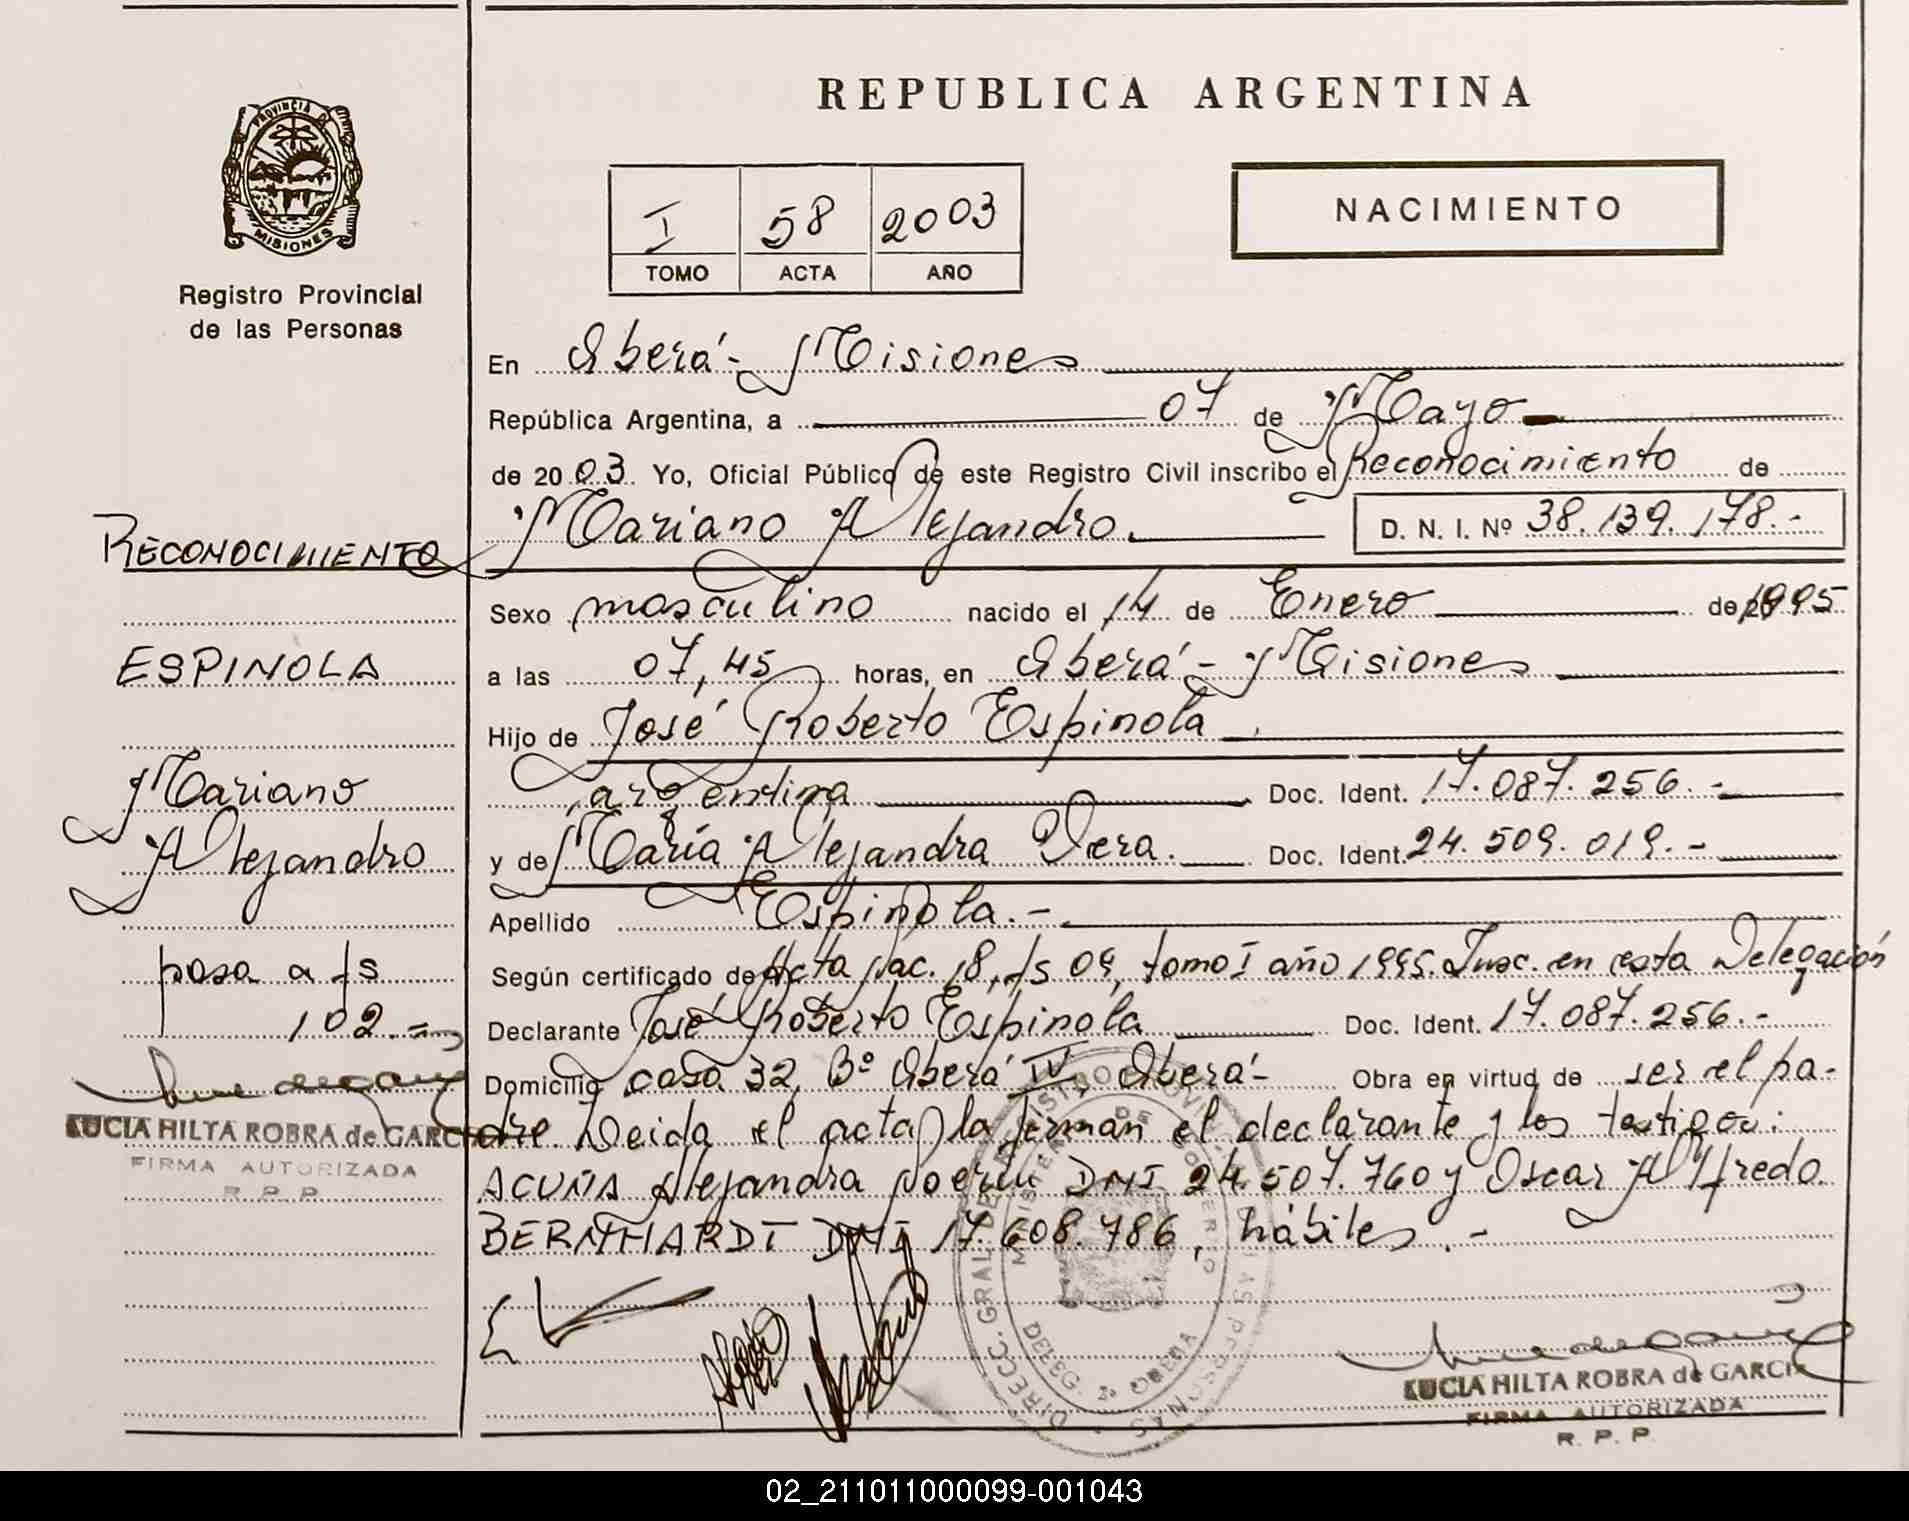 REPUBLICA ARGENTINA
PROVINCIA DE
MISIONES
Registro Provincial
de las Personas
I 58 2003
TOMO ACTA AÑO
NACIMIENTO
En Oberá - Misiones
República Argentina, a 07 de Mayo
de 2003. Yo, Oficial Público de este Registro Civil inscribo el Reconocimiento de
Mariano Alejandro. D. N. I. Nº 38.139.178.-
Sexo masculino nacido el 14 de Enero de 1995
a las 07,45 horas, en Oberá - Misiones
Hijo de José Roberto Espinola
argentina Doc. Ident. 17.087.256.-
y de María Alejandra Vera. Doc. Ident. 24.509.019.-
Apellido Espinola.-
Según certificado de Acta Nac. 18, fs 09, tomo I año 1995. Insc. en esta Delegación
Declarante José Roberto Espinola Doc. Ident. 17.087.256.-
Domicilio casa 32, Bº Oberá IV, Oberá - Obra en virtud de ser el pa-
dre. Leida el acta, la firman el declarante y los testigos:
ACUÑA Alejandra Noemi DNI 24.507.760 y Oscar Alfredo
BERNHARDT DNI 17.608.786, hábiles.-
RECONOCIMIENTO
ESPINOLA
Mariano
Alejandro
pasa a fs
102.=
LUCIA HILTA ROBRA de GARCIA
FIRMA AUTORIZADA
R. P. P.
DELEG. 2ª OBERA
LUCIA HILTA ROBRA de GARCIA
FIRMA AUTORIZADA
R. P. P.
02_211011000099-001043